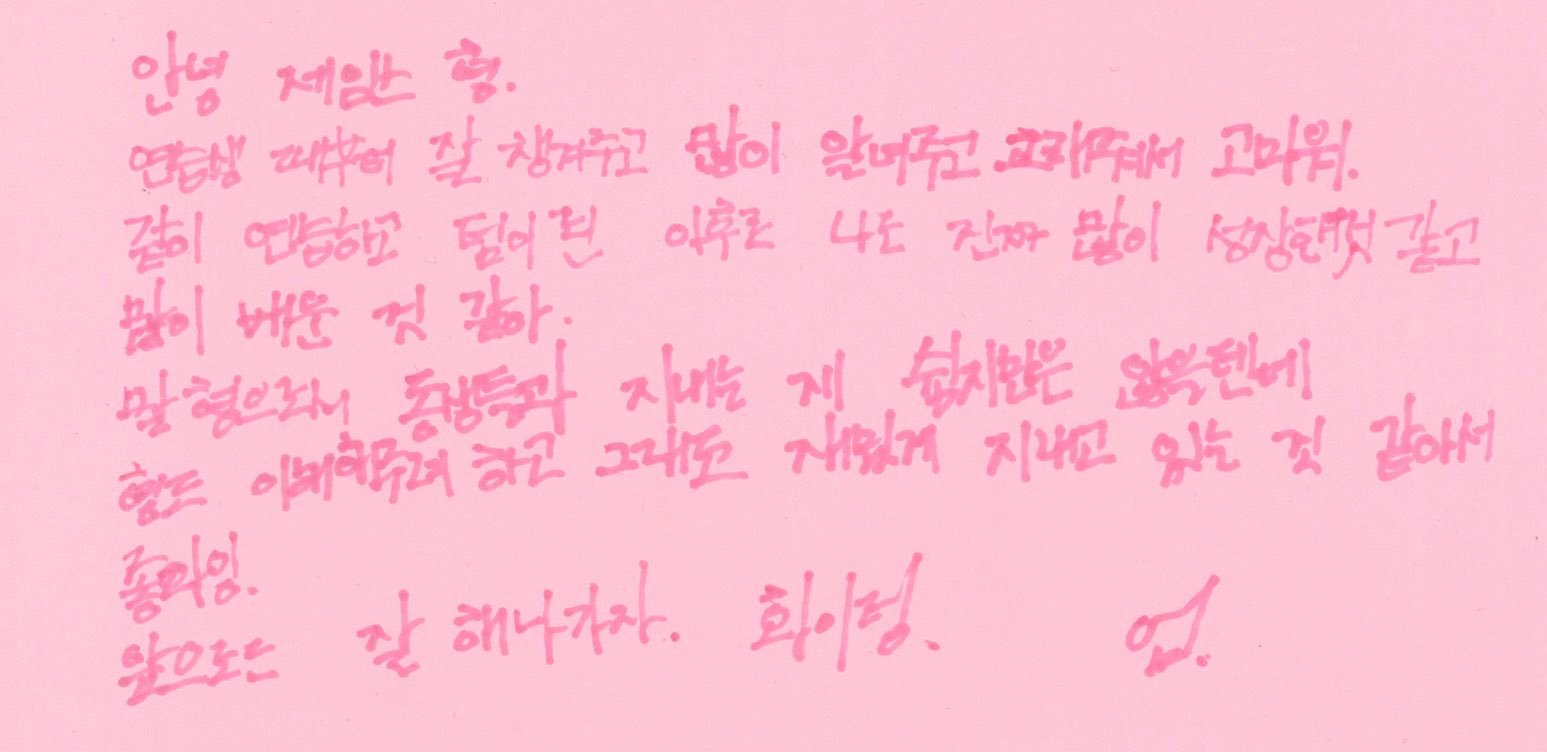 안녕 제임스 형.
연습생 때부터 잘 챙겨주고 많이 알려주고 그래줘서 고마워.
같이 연습하고 팀이 된 이후로 나도 진짜 많이 성장한것 같고
많이 배운 것 같아.
맏형으로서 동생들과 지내는 게 쉽지만은 않을텐데
항상 이해해주려 하고 그래도 재밌게 지내고 있는 것 같아서
좋아잉.
앞으로도 잘 해나가자. 화이팅.